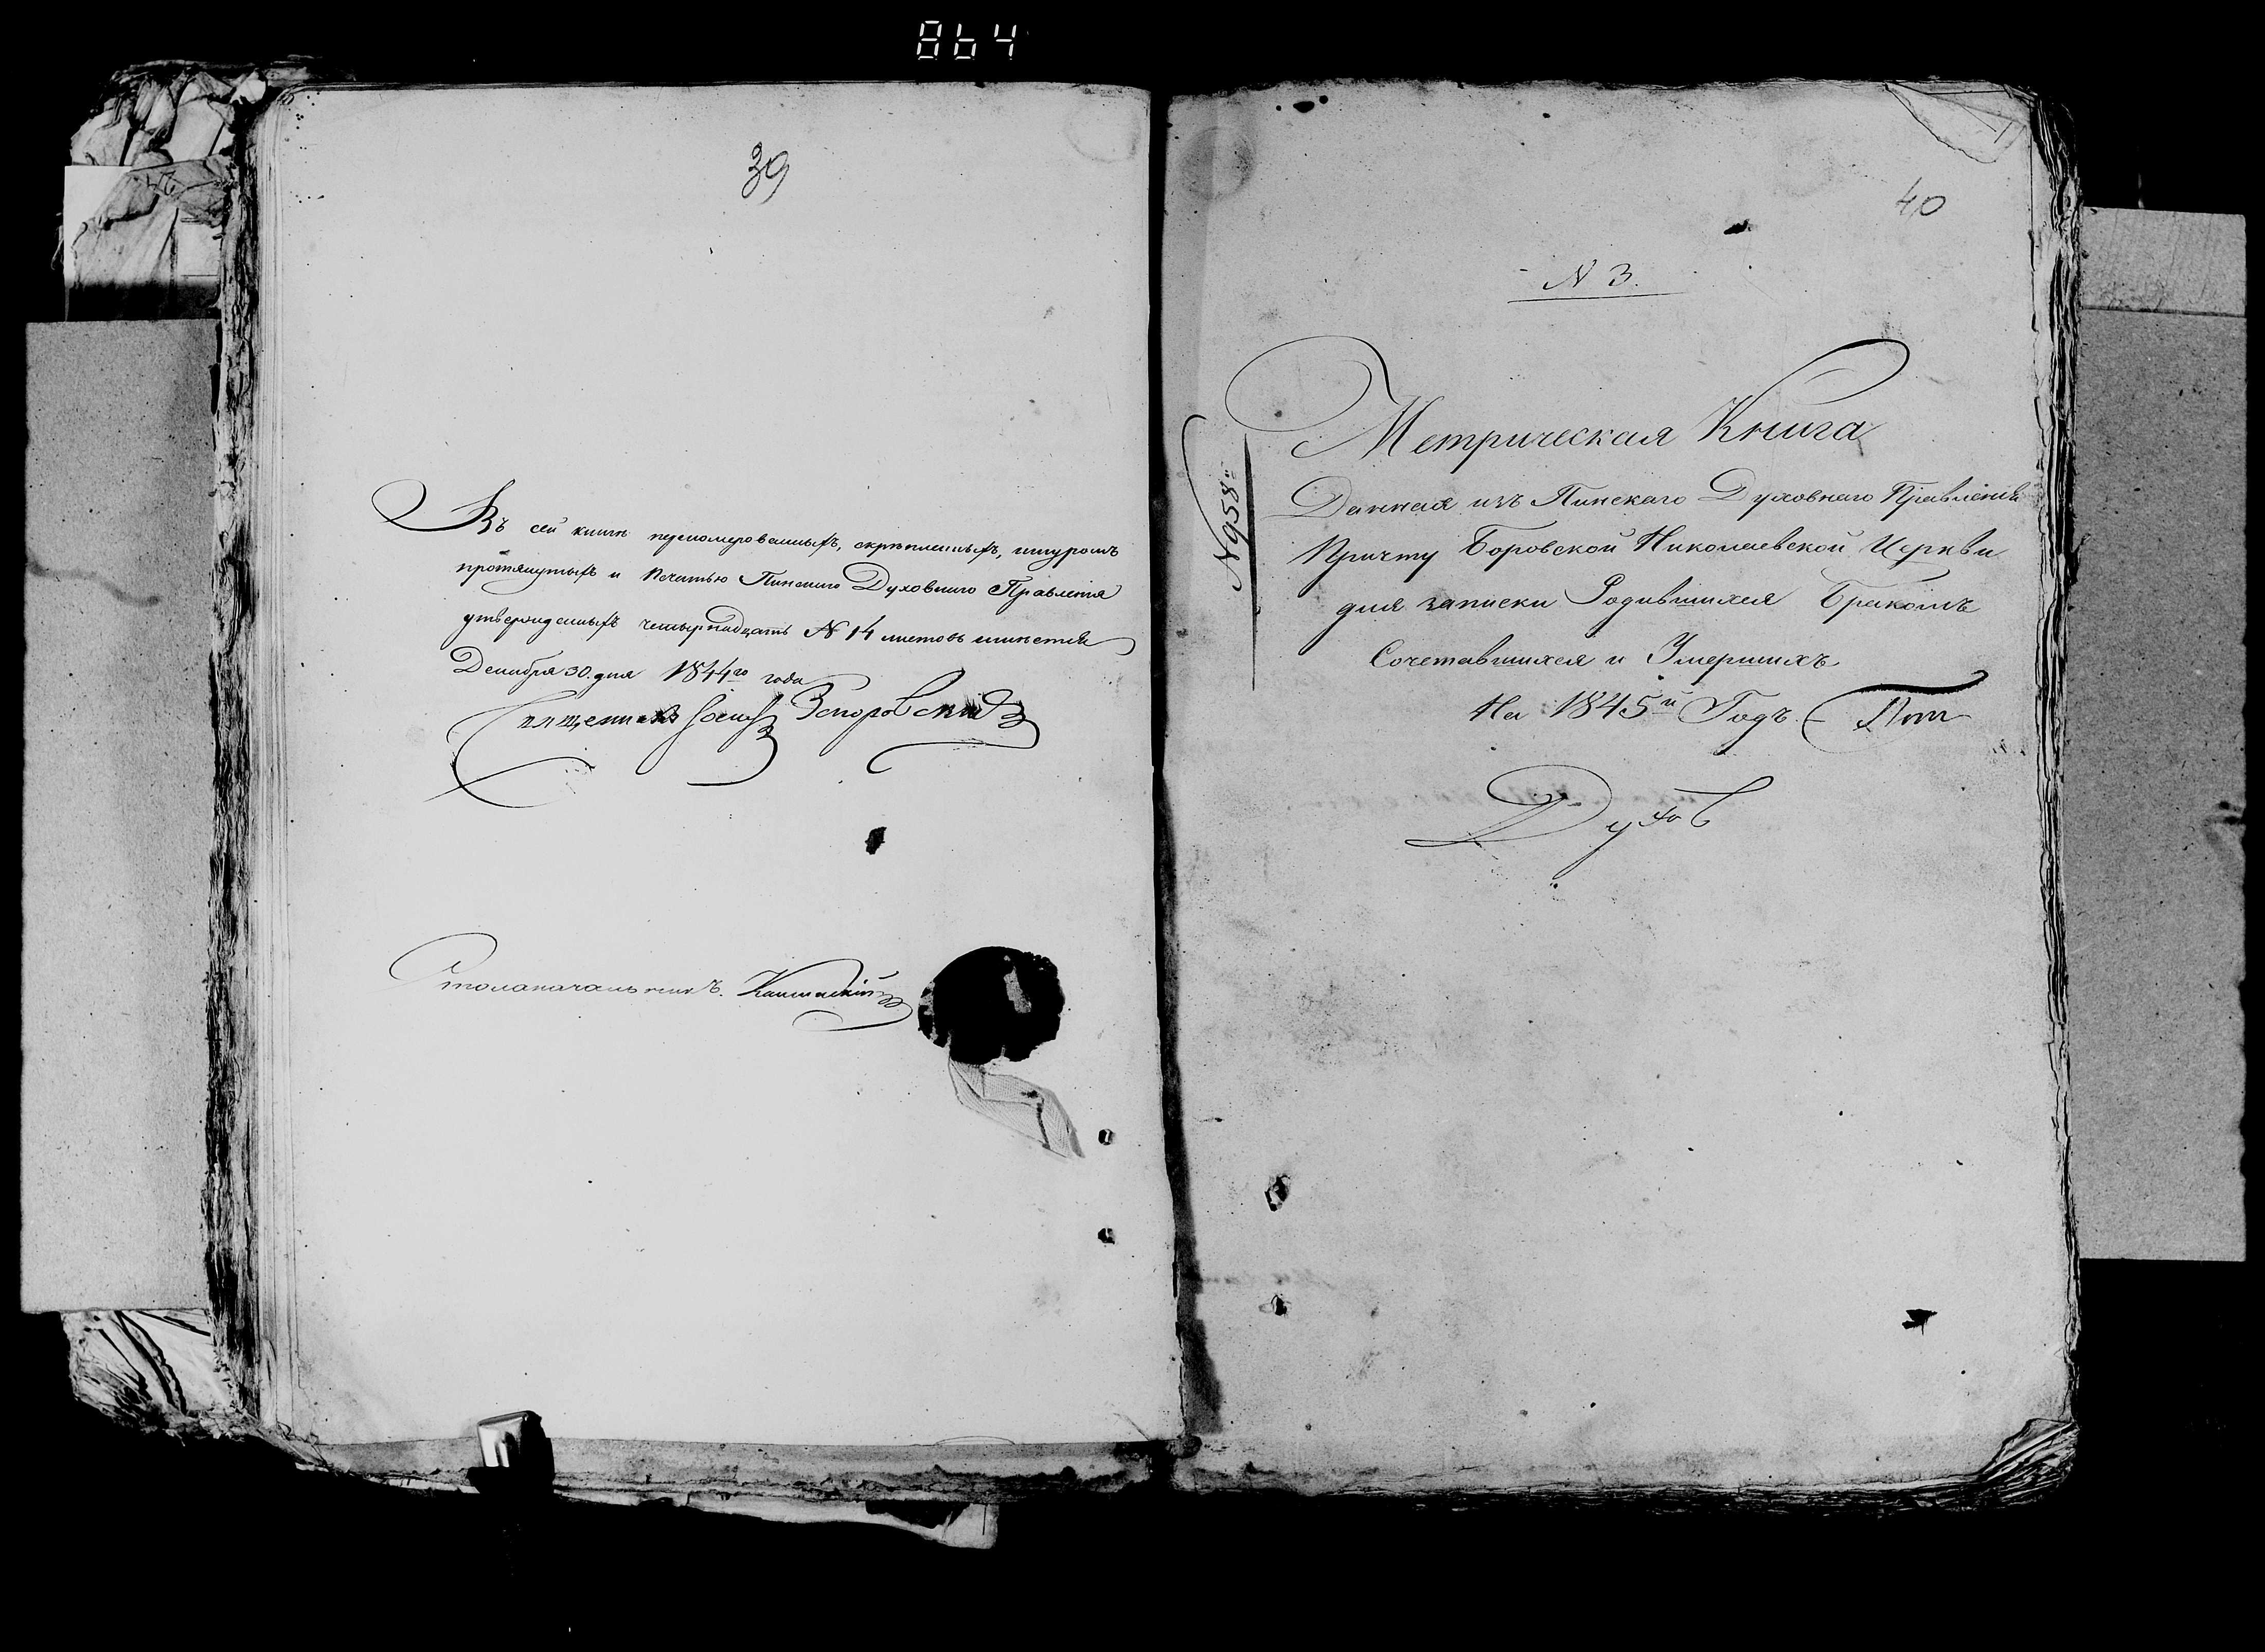 864
39
Въ сей книгѣ перномерованныхъ, скрѣпленныхъ, шнуромъ
протянутыхъ и Печатью Пинскаго Духовнаго Правленія
утвержденныхъ четырнадцать N 14 листовъ имѣется
Декабря 30. дня 1844го года
Священникъ
Столоначальникъ.
40
N 3.
N 958
Метрическая Книга
Данная изъ Пинскаго Духовнаго Правленія
Причту Боровской Николаевской Церкви
для записки Родившихся Бракомъ
Сочетавшихся и Умершихъ
На 1845й Годъ
Духов